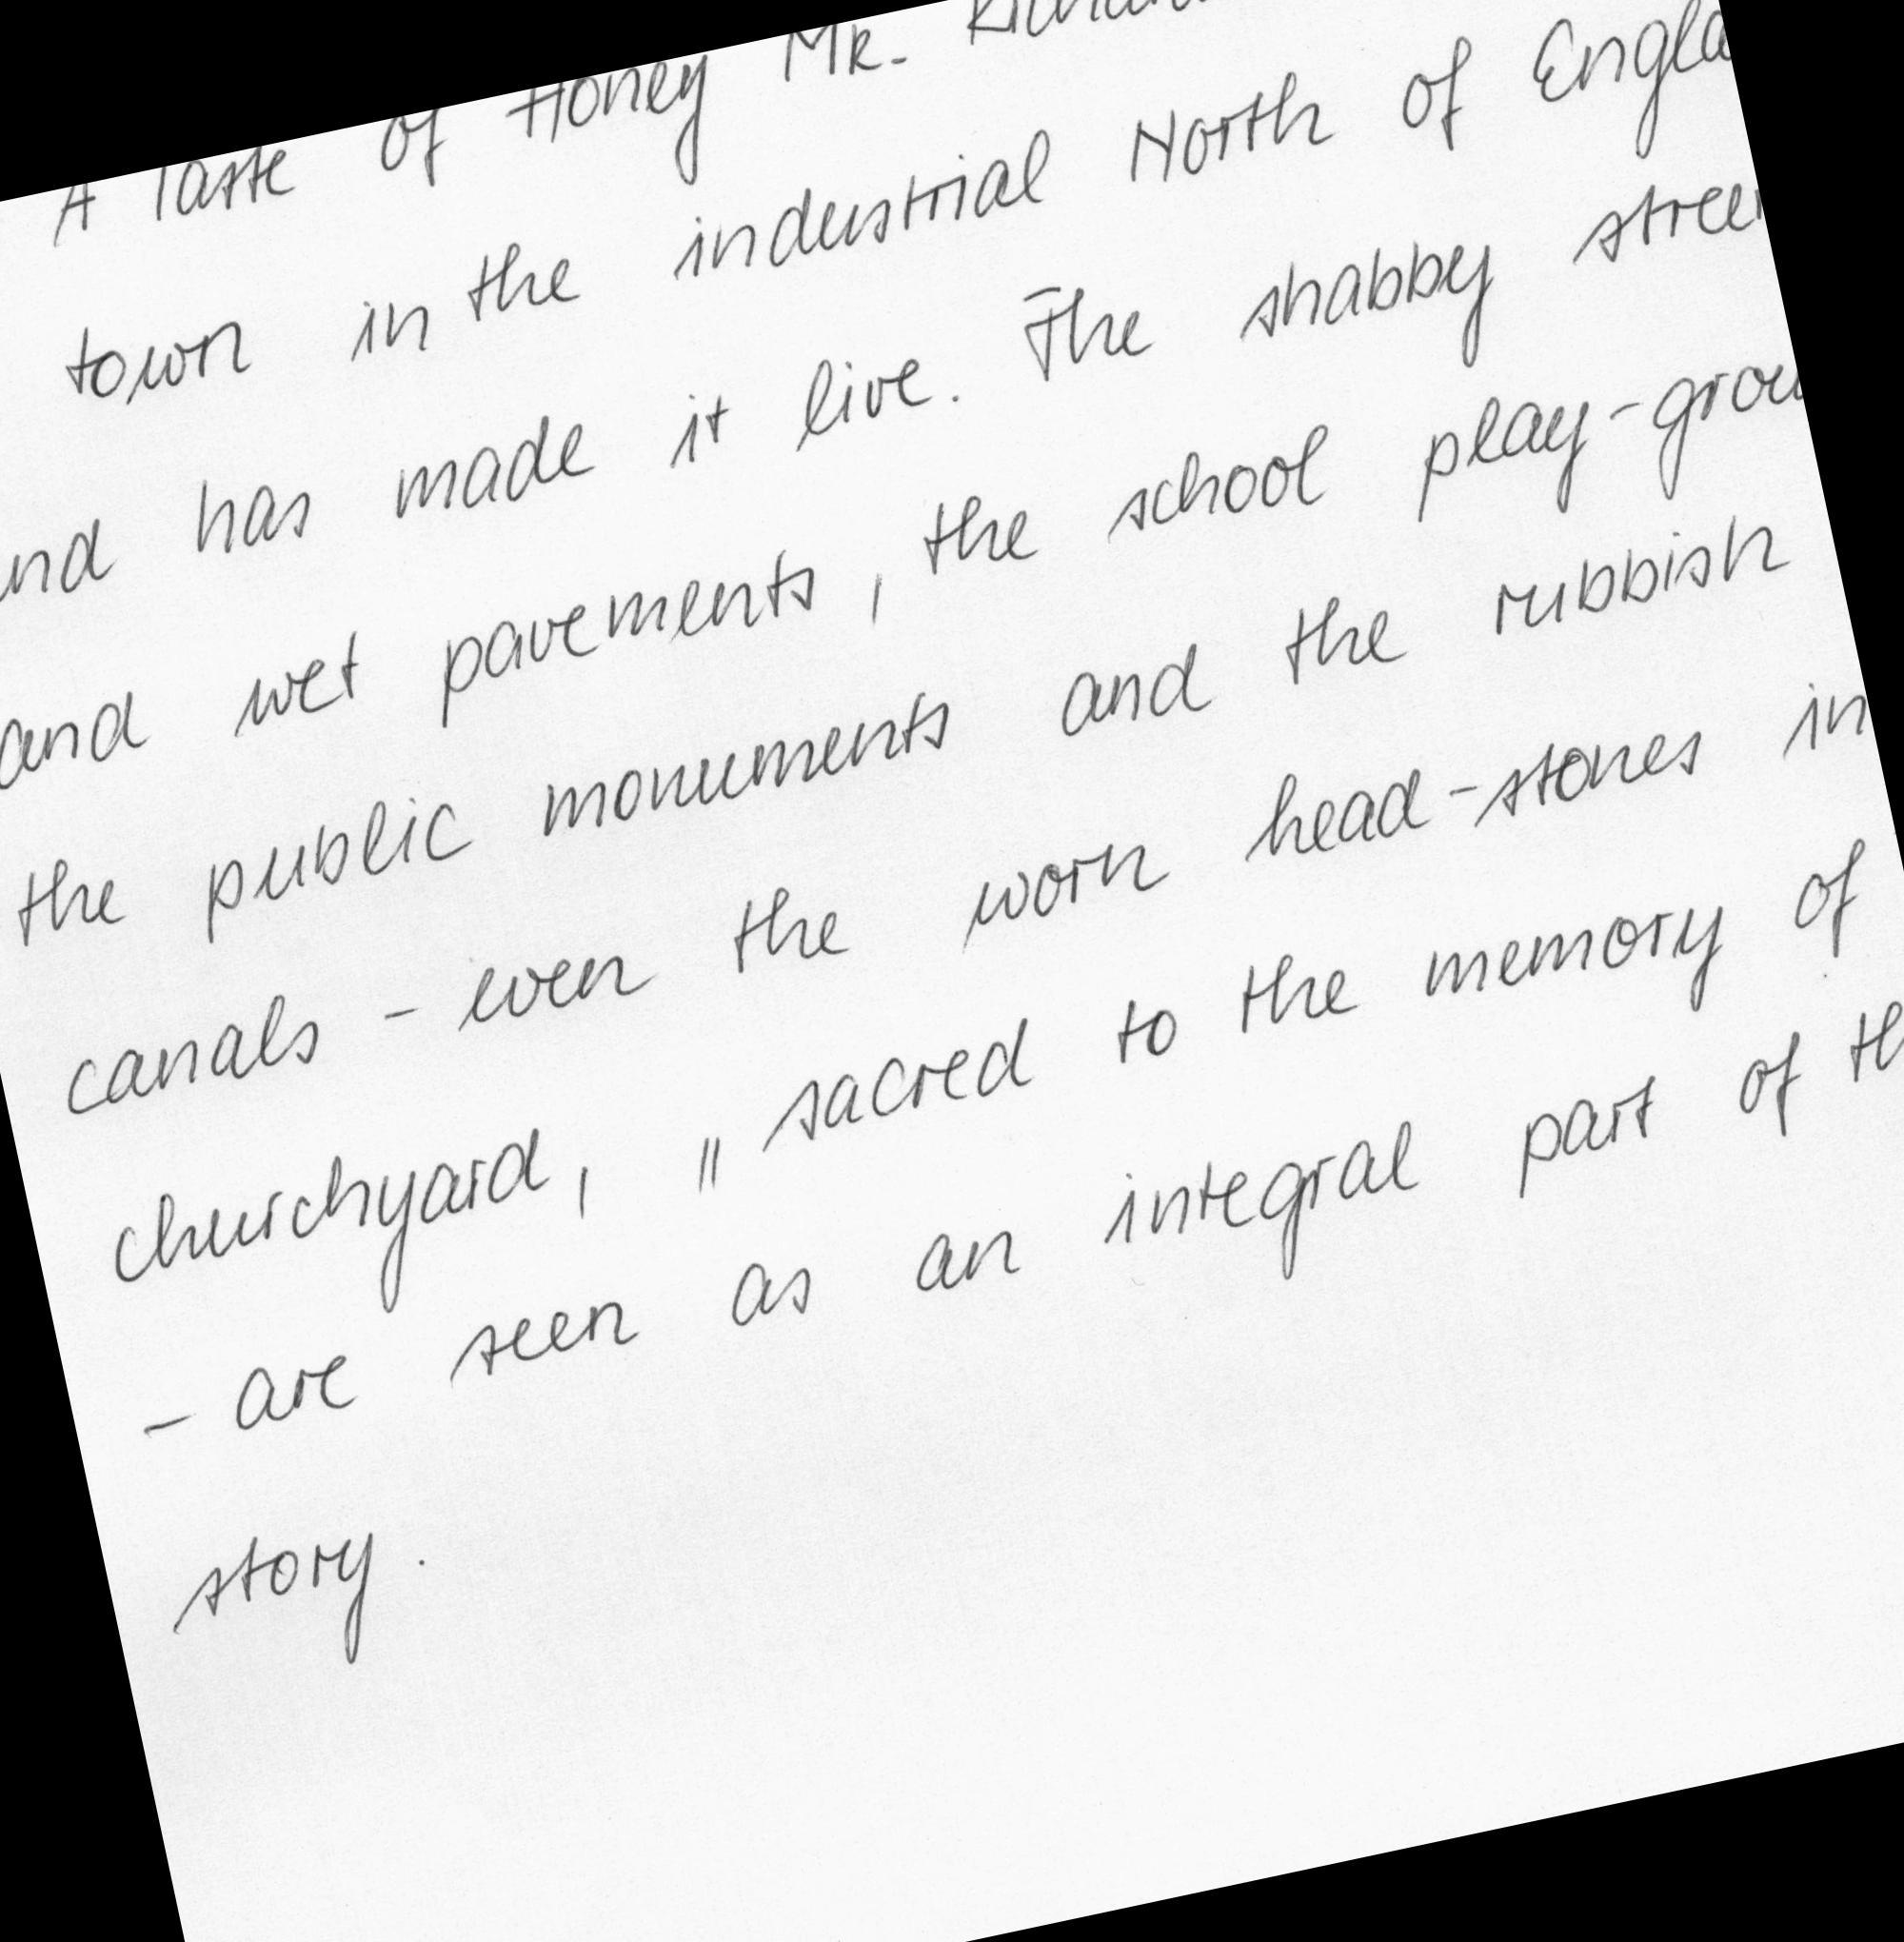 A Taste of Honey Mr.
town in the industrial North of Engla
and has made it live. The shabby stree
and wet pavements, the school play-grou
the public monuments and the rubbish
canals - even the worn head-stones in
churchyard, „sacred to the memory of
- are seen as an integral part of th
story.